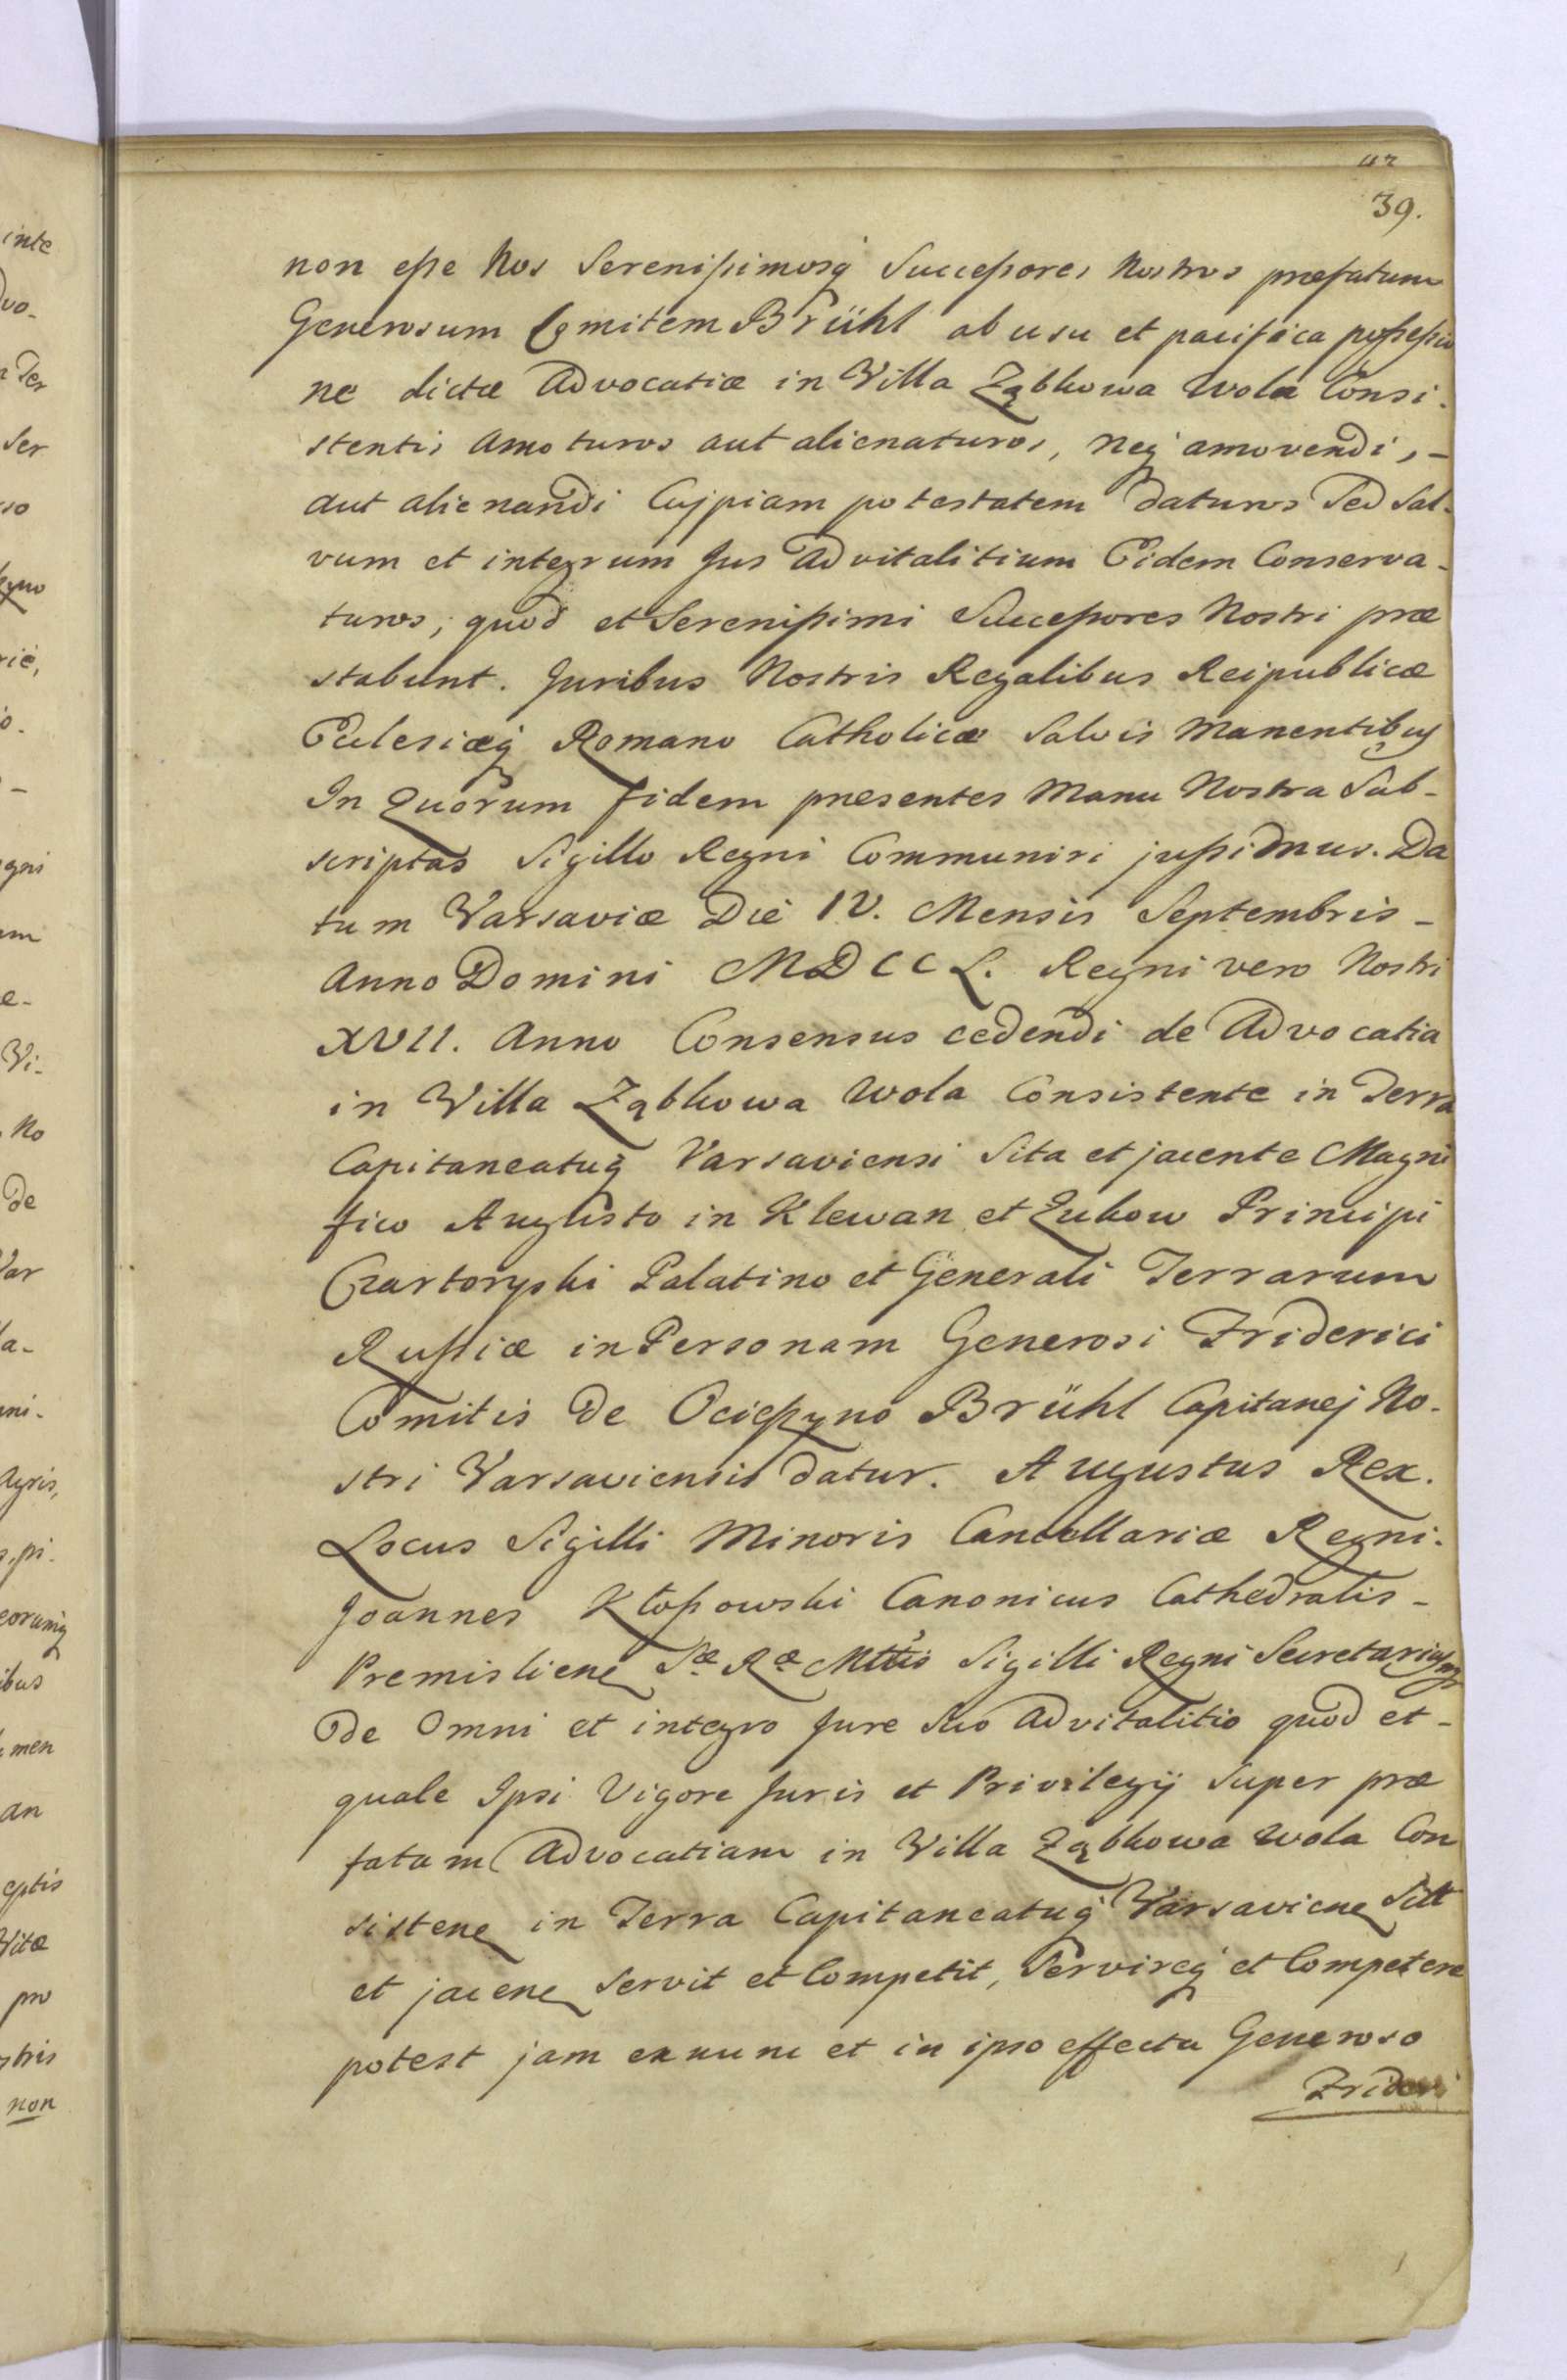 39.
non eſse Nos Sereniſsimosq́ Succeſsores Nostros præfatum
Generosum Comitem Brühl ab usu et pacifica poſseſsio
ne dictæ Advocatiæ in Villa Ząbkowa Wola Consi-
stentis amoturos aut alienaturos, neq́ amovendi, -
aut alienandi Cujpiam potestatem daturos Sed Sal-
vum et integrum Jus Advitalitium Eidem Conserva-
turos, quod et Sereniſsimi Succeſsores Nostri præ
stabunt. Juribus Nostris Regalibus Reipublicæ
Eclesiæq́ Romano Catholicæ Salvis Manentibus
In Quorum fidem presentes Manu Nostra Sub-
scriptas Sigillo Regni Communiri juſsimus. Da
tum Varsaviæ Die IV. Mensis Septembris -
Anno Domini MDCCL. Regni vero Nostri
XVII. Anno Consensus cedendi de Advocatia
in Villa Ząbkowa Wola Consistente in Terra
Capitaneatuq́ Varsaviensi Sita et jacente Magni
fico Augusto in Klewan et Zukow Principi
Czartoryski Palatino et Generali Terrarum
Ruſsiæ in Personam Generosi Friderici
Comitis de Ocieſzyno Brühl Capitanej No-
stri Varsaviensis datur. Augustus Rex.
Locus Sigilli Minoris Cancellariæ Regni.
Joannes Kłoſsowski Canonicus Cathedralis -
Premislien Sæ Ræ Mttis Sigilli Regni Secretarius
De Omni et integro Jure Suo Advitalitio quod et -
quale Ipsi Vigore Juris et Privilegij Super præ
fatam Advocatiam in Villa Ząbkowa Wola Con
sisten in Terra Capitaneatuq́ Varsavien Sitt
et jacen Servit et Competit, Servireq́ et Competere
potest jam exnunc et in ipso effectu Generoso
Frideri
inte
vo-
Ser
egni
um
e-
Vi-
No
de
Var
la-
mni-
Agris,
s, pi-
eorumq́
ibus
men
an
eptis
Vitæ
pro
stris
non